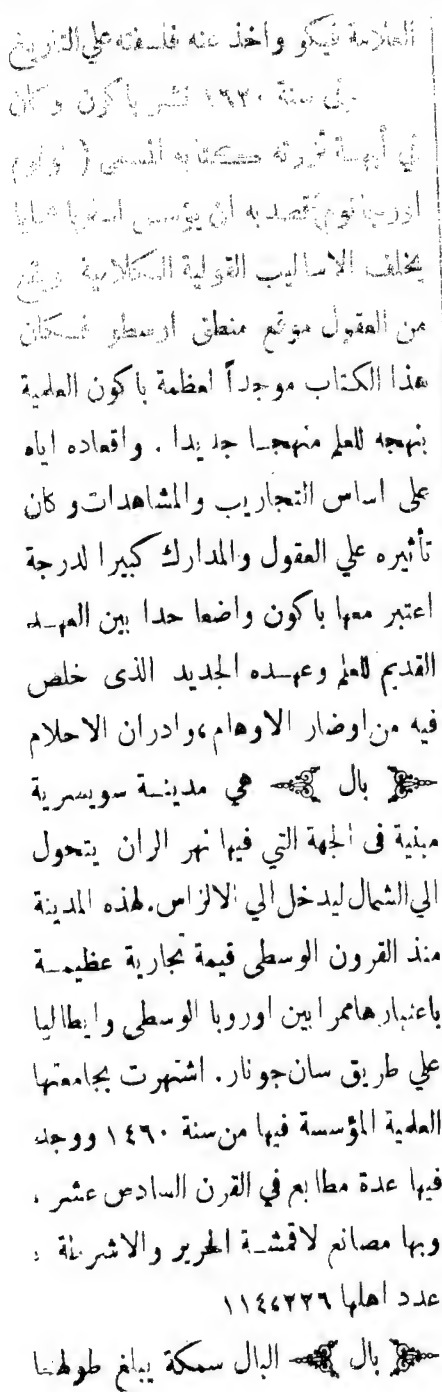 العلامة فيكو واخذ عنه فلسفته علي التاريخ
سنة ١٦٢٠ نشر باكون وكان
في
ان يؤسس
يخلف الاساليب القولية الكلامية ويقع
من العقول موقع منطق ارسطو فكان
هذا الكتاب موجداً لعظمة باكون العلمية
بنهجه للعلم منهجا جديدا . واقعاده اياه
على اساس التجاريب والمشاهدات وكان
تأثيره علي العقول والمدارك كبيرا لدرجة
اعتبر معها باكون واضعا حدا بين العهد
القديم للعلم وعهده الجديد الذى خلص
فيه من اوضار الاوهام، وادران الاحلام
بال هي مدينة سويسرية
مبنية فى الجهة التي فيها نهر الران يتحول
الي الشمال ليدخل الي الالزاس. لهذه المدينة
منذ القرون الوسطى قيمة تجارية عظيمة
باعتبارها ممرا بين اوروبا الوسطى وايطاليا
علي طريق سان جونار . اشتهرت بجامعتها
العلمية المؤسسة فيها من سنة ١٤٦٠ ووجد
فيها عدة مطابع في القرن السادس عشر .
وبها مصانع لاقمشة الحرير والاشرطة .
عدد اهلها ١١٤٤٢٢٦
بال البال سمكة يبلغ طولها